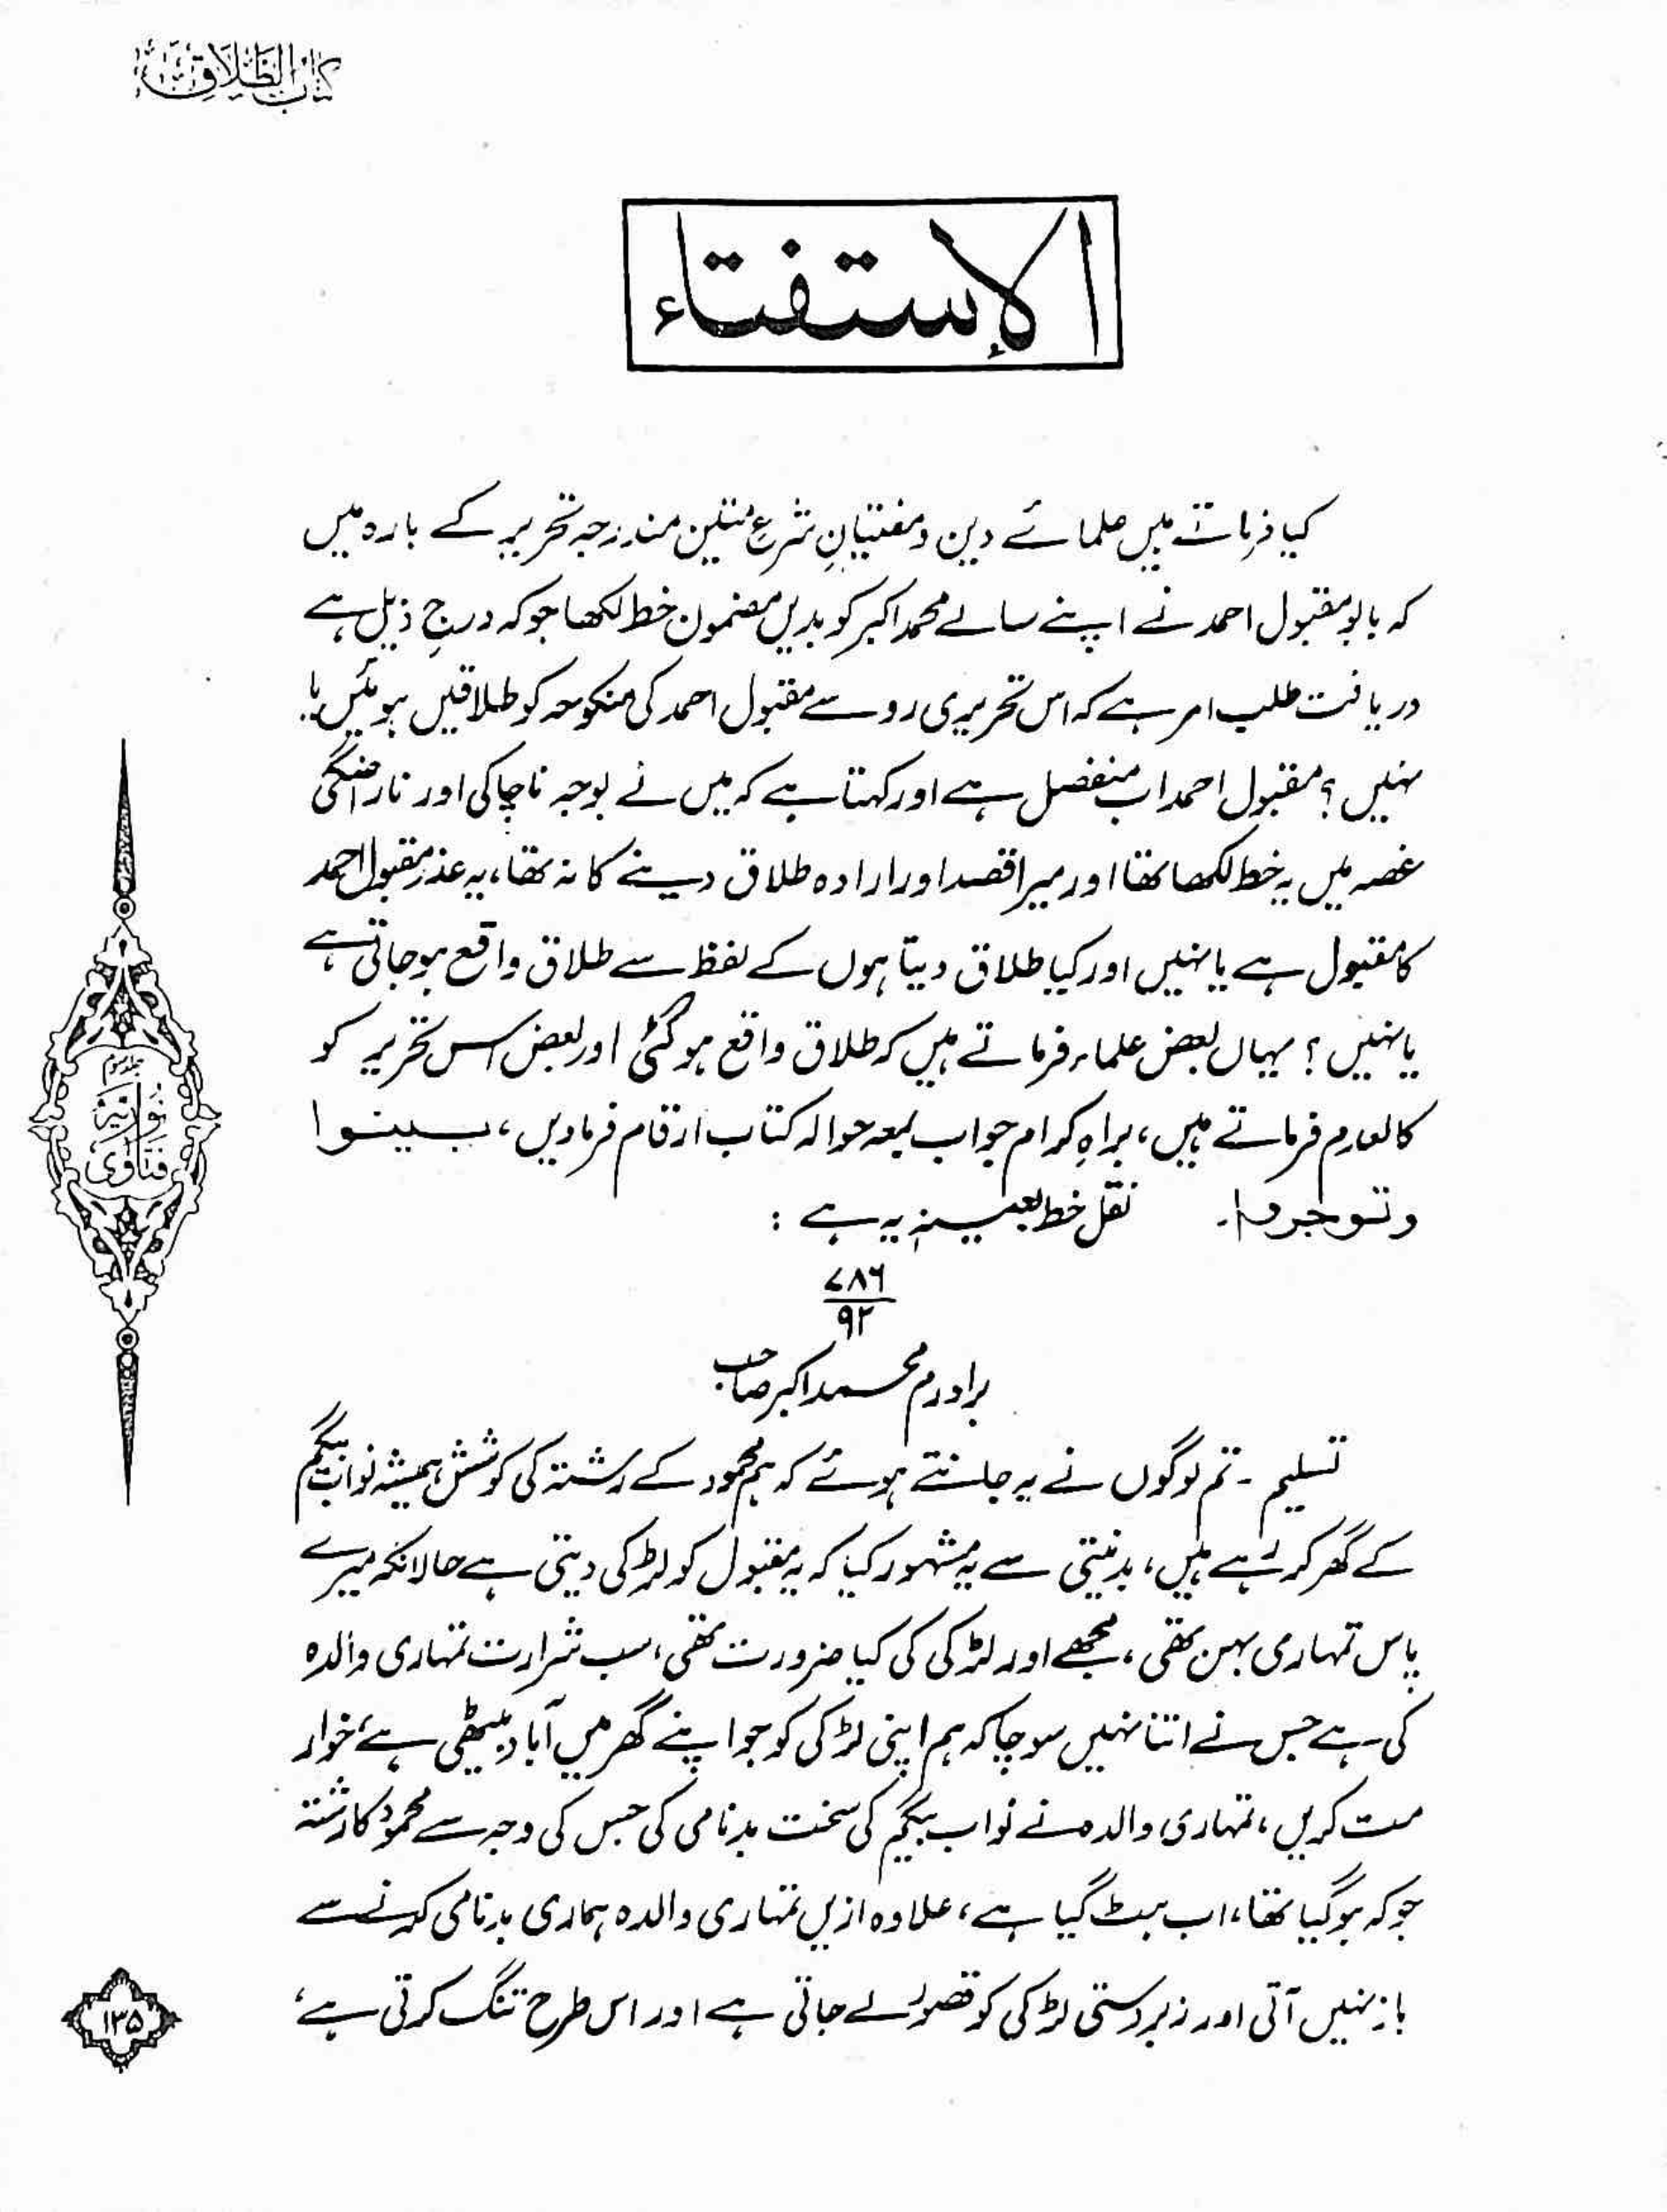 کتاب الطلاق
الاستفتاء
کیا فرماتے ہیں علمائے دین و مفتیانِ شرعِ متین مندرجہ تحریر کے بارہ میں
کہ بابو مقبول احمد نے اپنے سالے محمد اکبر کو بدیں مضمون خط لکھا جو کہ درجِ ذیل ہے
دریافت طلب امر ہے کہ اس تحریر کی رو سے مقبول احمد کی منکوحہ کو طلاقیں ہوئیں یا
نہیں؟ مقبول احمد اب منفصل ہے اور کہتا ہے کہ میں نے بوجہ ناچاکی اور ناراضگی
غصہ میں یہ خط لکھا تھا اور میرا قصد اور ارادہ طلاق دینے کا نہ تھا، یہ عذر مقبول احمد
کا مقبول ہے یا نہیں اور کیا طلاق دیتا ہوں کے لفظ سے طلاق واقع ہو جاتی ہے
یا نہیں؟ یہاں بعض علماء فرماتے ہیں کہ طلاق واقع ہو گئی اور بعض اس تحریر کو
کالعدم فرماتے ہیں، براہِ کرام جواب بمعہ حوالہ کتاب ارقام فرماویں، بینوا
وتوجروا۔ نقل خط بعینہٖ یہ ہے :
۷۸۶
۹۲
برادرم محمد اکبر صاحب
تسلیم ۔ تم لوگوں نے یہ جانتے ہوئے کہ ہم محمود کے رشتہ کی کوشش ہمیشہ نواب بیگم
کے گھر کر رہے ہیں، بدنیتی سے یہ مشہور کیا کہ یہ مقبول کو لڑکی دیتی ہے حالانکہ میرے
پاس تمہاری بہن تھی، مجھے اور لڑکی کی کیا ضرورت تھی، سب شرارت تمہاری والدہ
کی ہے جس نے اتنا نہیں سوچا کہ ہم اپنی لڑکی کو جو اپنے گھر میں آباد بیٹھی ہے، خوار
مت کریں، تمہاری والدہ نے نواب بیگم کی سخت بدنامی کی جس کی وجہ سے محمود کا رشتہ
جو کہ ہو گیا تھا، اب ہٹ گیا ہے، علاوہ ازیں تمہاری والدہ ہماری بدنامی کرنے سے
باز نہیں آتی اور زبردستی لڑکی کو قصور لے جاتی ہے اور اس طرح تنگ کرتی ہے،
فتاویٰ نوریہ
۱۳۵